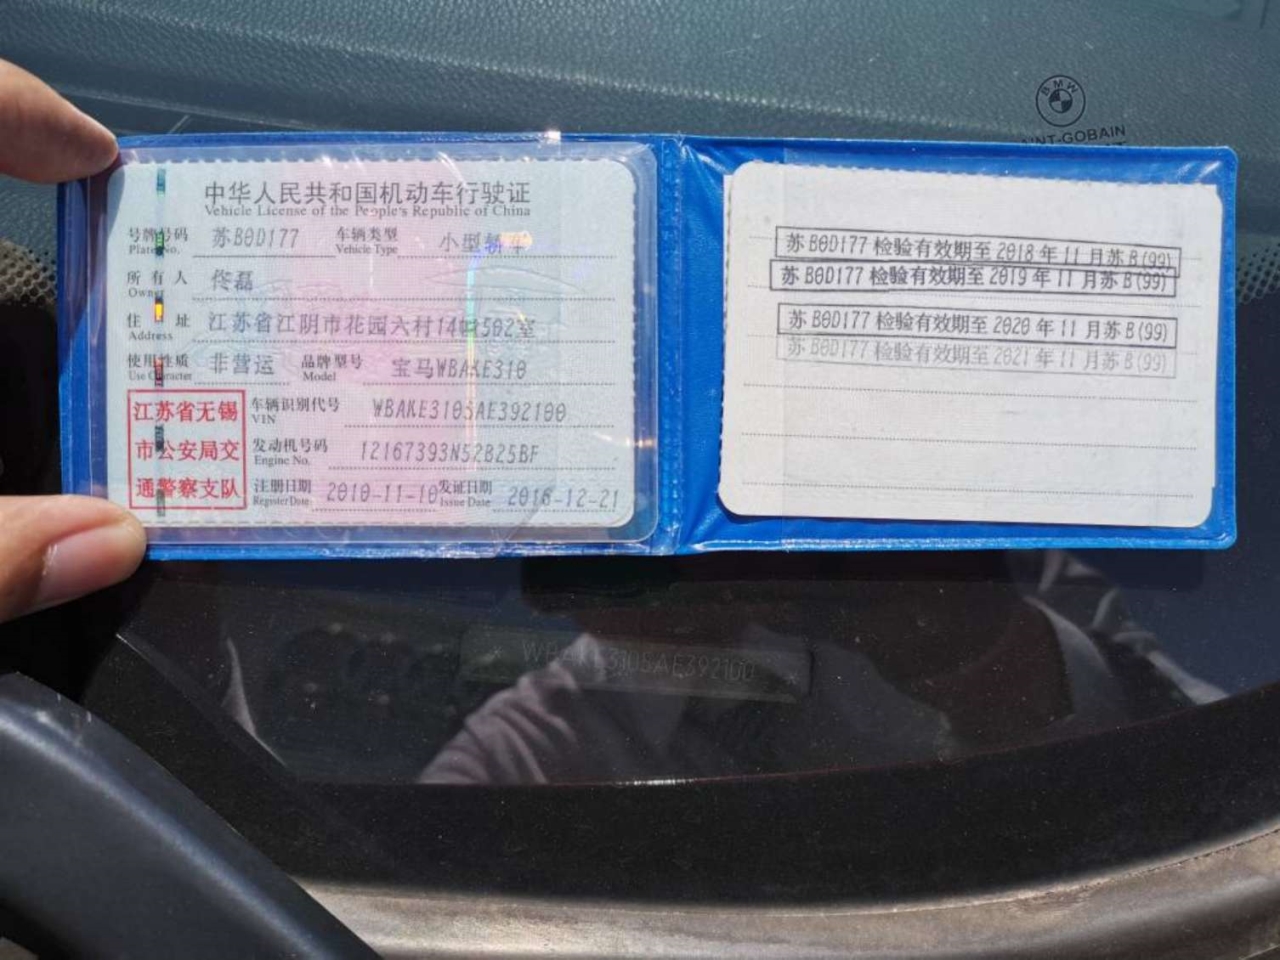 中华人民共和国机动车行驶证
Vehicle License of the People's Republic of China
号牌号码 苏B0D177 车辆类型 小型轿车
Plate No. Vehicle Type
所有人 佟磊
Owner
住址 江苏省江阴市花园六村14幢502室
Address
使用性质 非营运 品牌型号 宝马WBAKE310
Use Character Model
江苏省无锡
市公安局交
通警察支队
车辆识别代号 WBAKE3105AE392100
VIN
发动机号码 12167393N52B25BF
Engine No.
注册日期 2010-11-10 发证日期 2016-12-21
Register Date Issue Date
苏B0D177 检验有效期至 2018 年 11 月苏 B(99)
苏 B0D177 检验有效期至 2019 年 11 月苏 B(99)
苏 B0D177 检验有效期至 2020 年 11 月苏 B(99)
苏 B0D177 检验有效期至 2021 年 11 月苏 B(99)
BMW
INT-GOBAIN
WBAKE3105AE392100